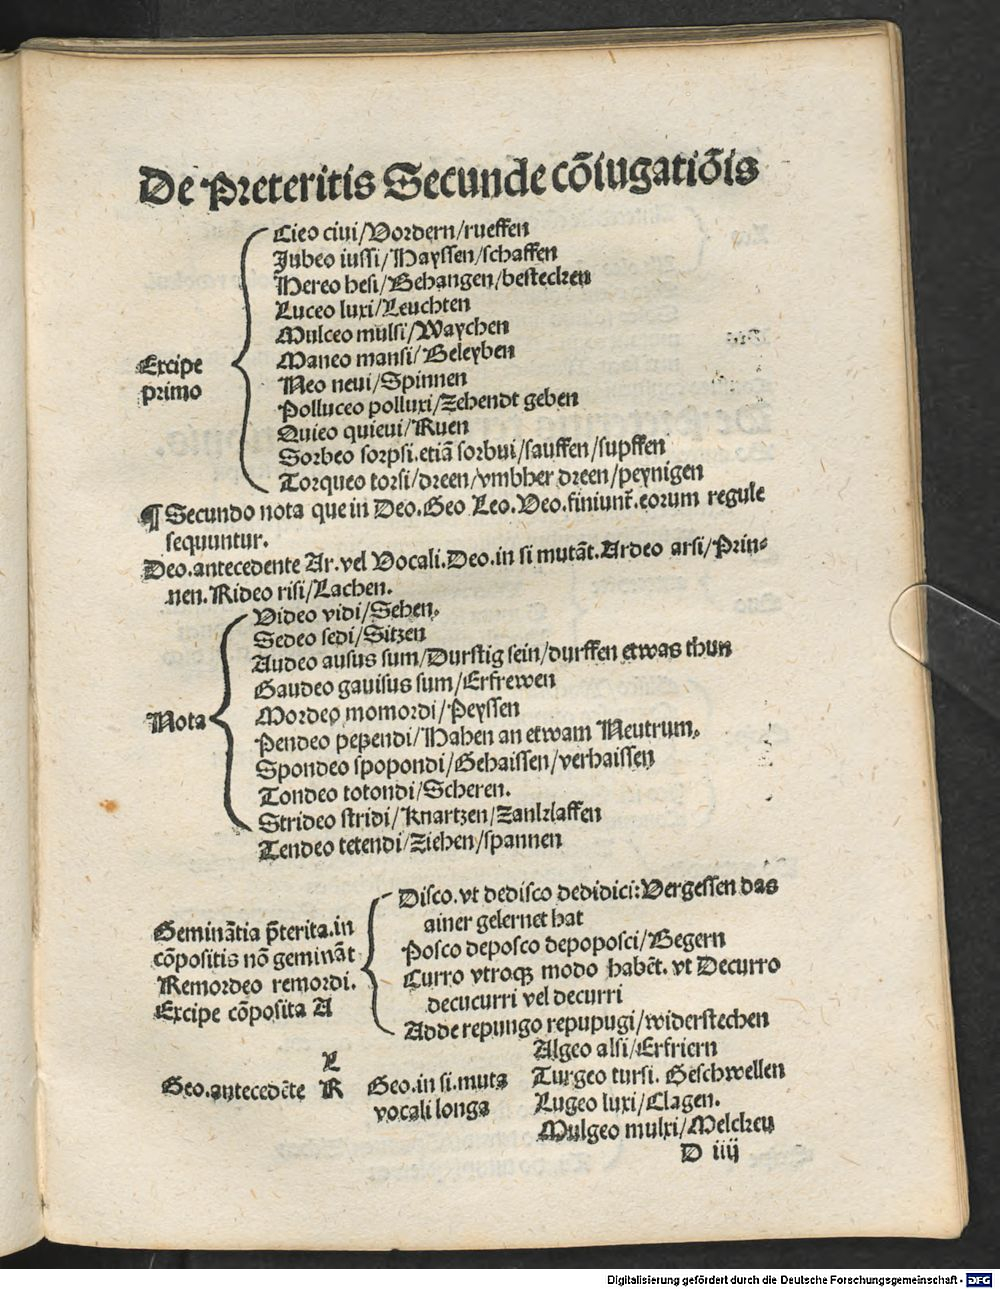 De Preteritis Secunde cōiugatiōis
Excipe
primo
Cieo ciui/Vordern/rueffen
Jubeo iussi/Hayssen/schaffen
Hereo hesi/Behangen/bestecken
Luceo luxi/Leuchten
Mulceo mulsi/Waychen
Maneo mansi/Beleyben
Neo neui/Spinnen
Polluceo polluxi/Zehendt geben
Quieo quieui/Ruen
Sorbeo sorpsi.etiā sorbui/sauffen/supffen
Torqueo torsi/dreen/vmbher dreen/peynigen
¶ Secundo nota que in Deo.Geo Leo.Veo.finiunt̄.eorum regule
sequuntur.
Deo.antecedente Ar.vel Vocali.Deo.in si mutāt.Ardeo arsi/Prin-
nen.Rideo risi/Lachen.
Nota
Video vidi/Sehen.
Sedeo sedi/Sitzen
Audeo ausus sum/Durstig sein/durffen etwas thun
Gaudeo gauisus sum/Erfrewen
Mordeo momordi/Peyssen
Pendeo pependi/Hahen an etwam Neutrum.
Spondeo spopondi/Gehaissen/verhaissen
Tondeo totondi/Scheren.
Strideo stridi/Knartzen/Zanklaffen
Tendeo tetendi/Ziehen/spannen
Geminātia p̄terita.in
cōpositis nō gemināt
Remordeo remordi.
Excipe cōposita A
Disco.vt dedisco dedidici:Vergessen das
ainer gelernet hat
Posco deposco depoposci/Begern
Curro vtroqꝫ modo habēt.vt Decurro
decucurri vel decurri
Adde repungo repupugi/widerstechen
Geo.antecedēte
L
R
Geo.in si.muta
vocali longa
Algeo alsi/Erfriern
Turgeo tursi. Geschwellen
Lugeo luxi/Clagen.
Mulgeo mulxi/Melcken
D iiij
Digitalisierung gefördert durch die Deutsche Forschungsgemeinschaft - DFG